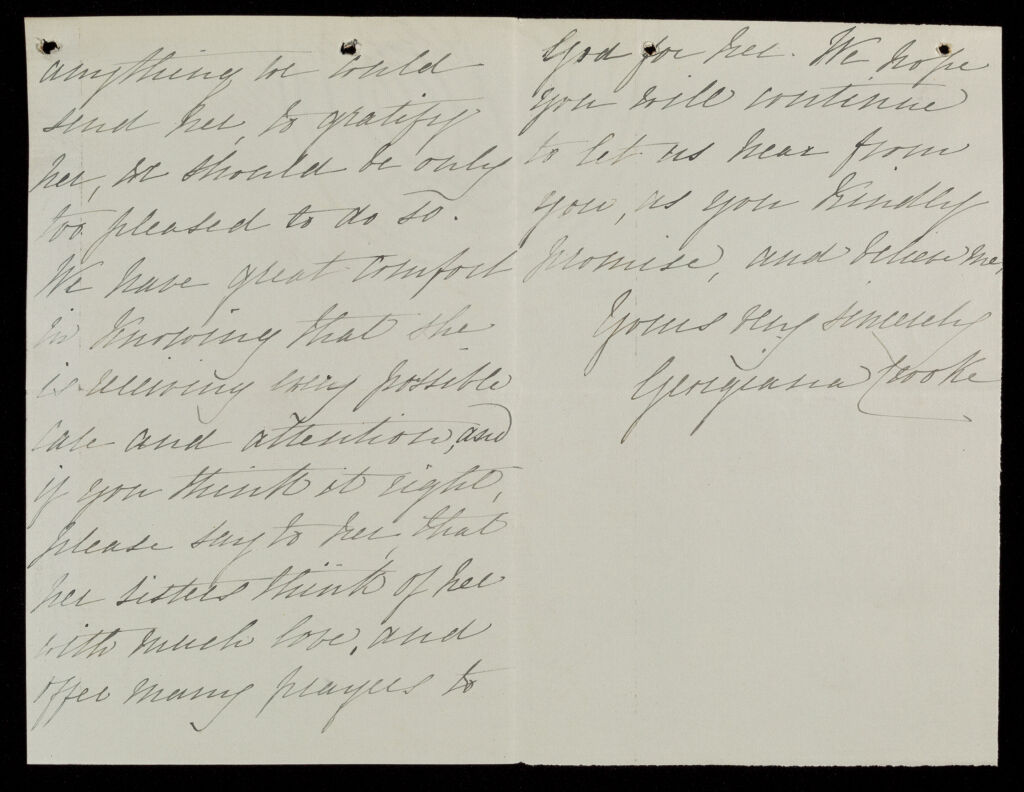 anything we could
send her, to gratify
her, we should be only
too pleased to do so.
We have great comfort
in knowing that she
is receiving every possible
care and attention, and
if you think it right,
please say to her, that
her sisters think of her
with much love, and
offer many prayers to
God for her. We hope
you will continue
to let us hear from
you, as you kindly
promise, and believe me,
Yours very sincerely
Georgiana Crooke